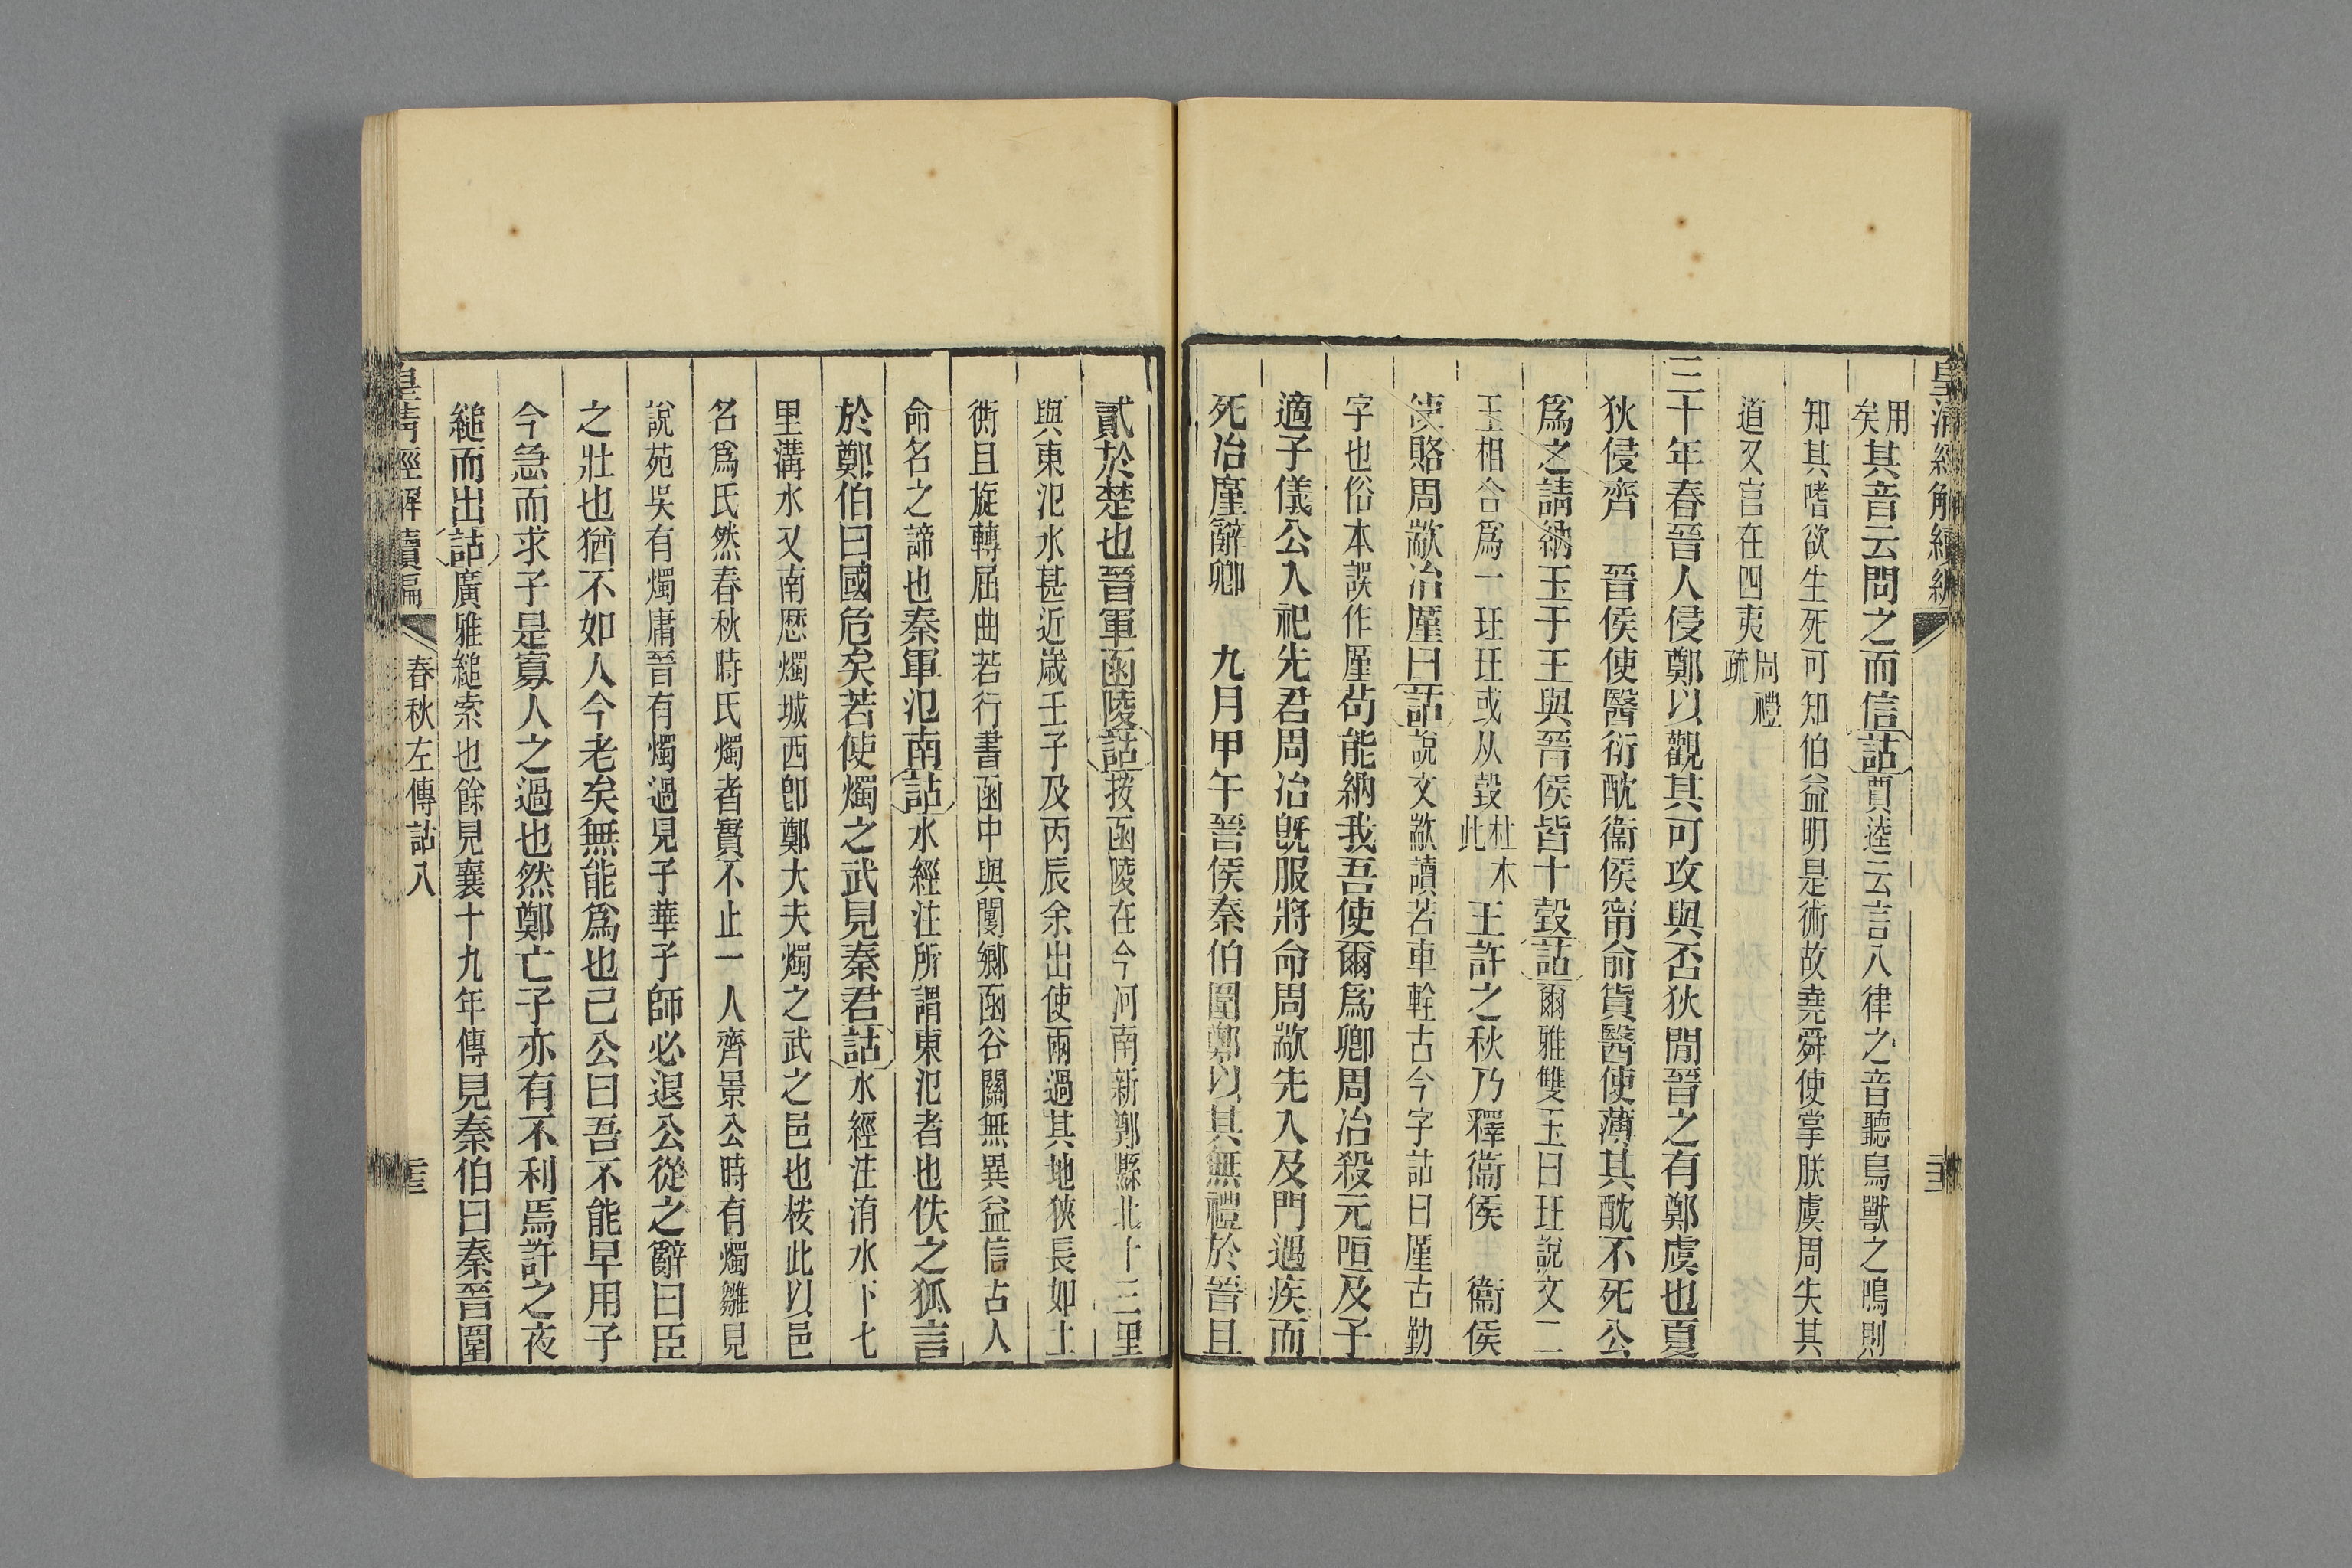 皇清經解續編
用矣其音云問之而信詁賈逵云言八律之音聽鳥獸之鳴則
知其嗜欲生死可知伯益明是術故堯舜使掌朕虞周失其
道又官在四夷周禮疏
三十年春晉人侵鄭以觀其可攻與否狄閒晉之有鄭虞也夏
狄侵齊　晉侯使醫衍酖衞侯甯俞貨醫使薄其酖不死公
爲之請納玉于王與晉侯皆十瑴詁爾雅雙玉曰玨說文二
玉相合爲一玨玨或从瑴杜本此王許之秋乃釋衞侯　衞侯
使賂周歂冶廑曰詁說文歂讀若車輇古今字詁曰廑古勤
字也俗本誤作厪苟能納我吾使爾爲卿周冶殺元咺及子
適子儀公入祀先君周冶旣服將命周歂先入及門遇疾而
死冶廑辭卿　九月甲午晉侯秦伯圍鄭以其無禮於晉且
貳於楚也晉軍函陵詁按函陵在今河南新鄭縣北十三里
與東氾水甚近歲壬子及丙辰余出使兩過其地狹長如土
衖且旋轉屈曲若行書函中與閿鄉函谷關無異益信古人
命名之諦也秦軍氾南詁水經注所謂東氾者也佚之狐言
於鄭伯曰國危矣若使燭之武見秦君詁水經注洧水下七
里溝水又南歷燭城西卽鄭大夫燭之武之邑也桉此以邑
名爲氏然春秋時氏燭者實不止一人齊景公時有燭雛見
說苑吳有燭庸晉有燭過見子華子師必退公從之辭曰臣
之壯也猶不如人今老矣無能爲也已公曰吾不能早用子
今急而求子是寡人之過也然鄭亡子亦有不利焉許之夜
縋而出詁廣雅縋索也餘見襄十九年傳見秦伯曰秦晉圍
皇清經解續編
春秋左傳詁八